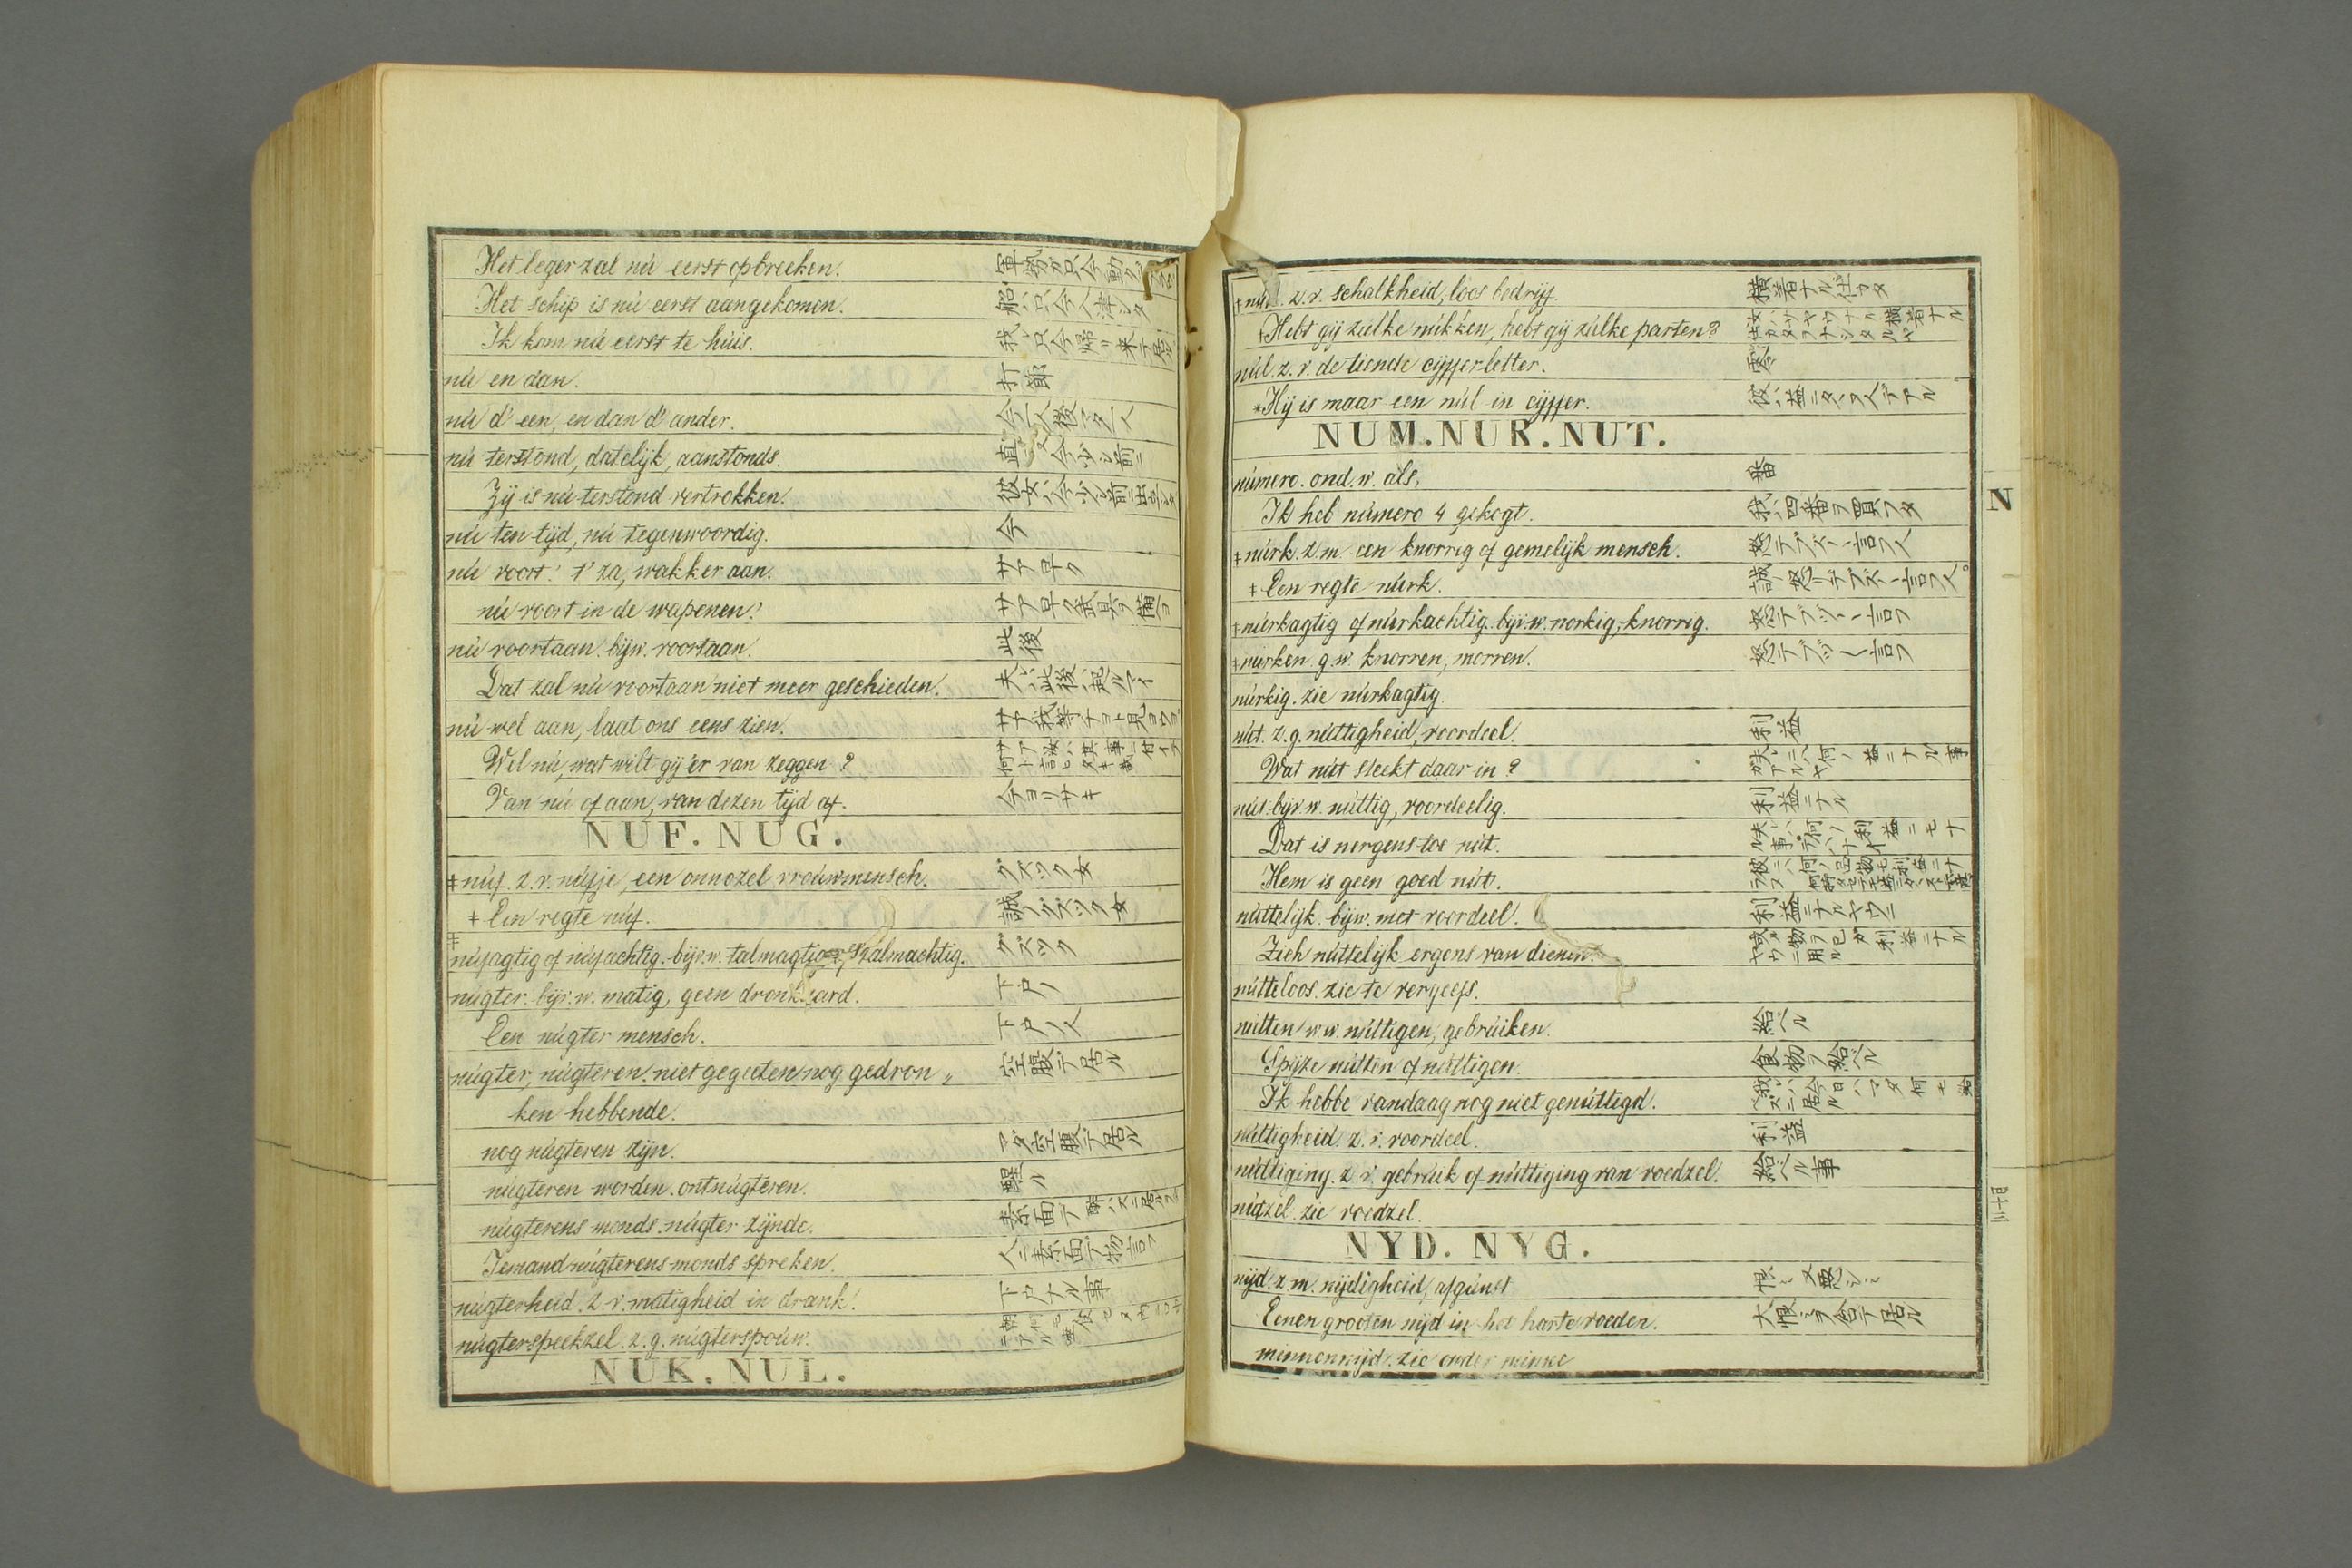 Het leger zal nú eerst opbreeken. 軍勢ガ只今動クデアラフ
Het schip is nú eerst aangekomen. 船ハ只今入津シタ
Ik kom nú eerst te húis. 我ハ只今帰リ来テ居ル
nú en dan. 打節
nú d' een, en dan d' ander. 今一人後マタ一人
nú terstond, datelijk, aanstonds. 直ニ又今少シ前ニ
Zij is nú terstond vertrokken. 彼女ハ今少シ前ニ出立シタ
nú ten tijd, nú tegenwoordig. 今
nú voort! t' za, wakker aan. サア早ク
nú voort in de wapenen! サア早ク武具ヲ備ヨ
nú voortaan. bijw. voortaan. 此後
Dat zal nú voortaan niet meer geschieden. 夫ハ此後ハ起ルマイ
nú wel aan, laat ons eens zien. サア我等チヨト見ヨウゾ
Wel nú, wat wilt gij 'er van zeggen? サア汝ハ其事ニ付イテ何ト言ヒタキ哉
Van nú of aan, van dezen tijd af. 今ヨリサキ
NUF. NUG.
‡ núf. z. v. núfje, een onnozel vroúwmensch. グズツク女
‡ Een regte núf. 誠ノグズツク女
‡ núfagtig of núfachtig. bijv. w. talmagtig, talmachtig. グズツク
núgter. bijv. w. matig, geen dronkaard. 下戸ノ
Een núgter mensch. 下戸ノ人
núgter, núgteren. niet gegeeten nog gedron„ 空腹デ居ル
ken hebbende.
nog núgteren zijn. マダ空腹デ居ル
núgteren worden. ontnúgteren. 醒ル
núgterens monds. núgter zijnde. 素面デ
Iemand núgterens monds spreken. 人ニ素面デ物言フ
núgterheid. z. v. matigheid in drank. 下戸ナル事
núgterspeekzel. z. g. núgterspoúw.
NUK. NUL.
‡ z. v. schalkheid, loos bedrijf. 横着ナル仕カタ
‡ Hebt gij zulke núkken, hebt gij zúlke parten? 汝ハサヤウナル横着ナル仕カタヲナシタルヤ
núl. z. v. de tiende cijfferletter. 零
* Hij is maar een núl in cijffer. 彼ハ益ニタヽヌ人デアル
NUM. NUR. NUT.
número. ond. w. als, 番
Ik heb número 4 gekogt. 我ハ四番ヲ買フタ
‡ núrk. z. m. een knorrig of gemelijk mensch. 怒テブツ〱言フ人
‡ Een regte núrk. 誠ノ怒リテブツ〱言フ人。
‡ núrkagtig of núrkachtig. bijv. w. norkig, knorrig. 怒テブツ〱言フ
‡ núrken. g. w. knorren, morren. 怒テブツ〱言フ
núrkig. zie núrkagtig.
nút. z. g. núttigheid, voordeel. 利益
Wat nút steekt daar in? 夫ニハ何ノ益ニナル事ガアルヤ
nút. bijv. w. núttig, voordeelig. 利益ニナル
Dat is nergens toe nút. 夫ハ何ノ利益ニモナル事デハナイ
Hem is geen goed nút.
núttelijk. bijw. met voordeel. 利益ニナルヤウニ
Zich núttelijk ergens van dienen. 或ル物ヲ己ガ利益ニナルヤウニ用ル
nútteloos. zie te vergeefs.
nútten w. w. núttigen, gebrúiken. 給ベル
Spijze nútten of núttigen. 食物ヲ給ベル
Ik hebbe vandaag nog niet genúttigd. 我ハ今日ハマダ何モ給ベズニ居ル
núttigheid. z. v. voordeel. 利益
núttiging. z. v. gebrúik of núttiging van voedzel. 給ベル事
nútzel. zie voedzel.
NYD. NYG.
nijd. z. m. nijdigheid, afgúnst 恨ミ又悪シミ
Eenen grooten nijd in het harte voeden. 大恨ミヲ含テ居ル
minnennijd. zie onder minne
N
四十三